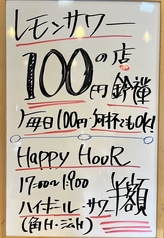 レモンサワー
100円の店
鈴蝉
毎日100円!何杯でもOK!
Happy HouR
17:00~19:00
ハイボール・サワー半額
(角H・ジムH)